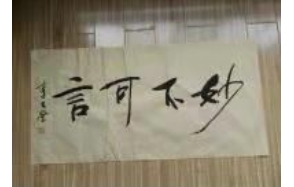 妙不可言